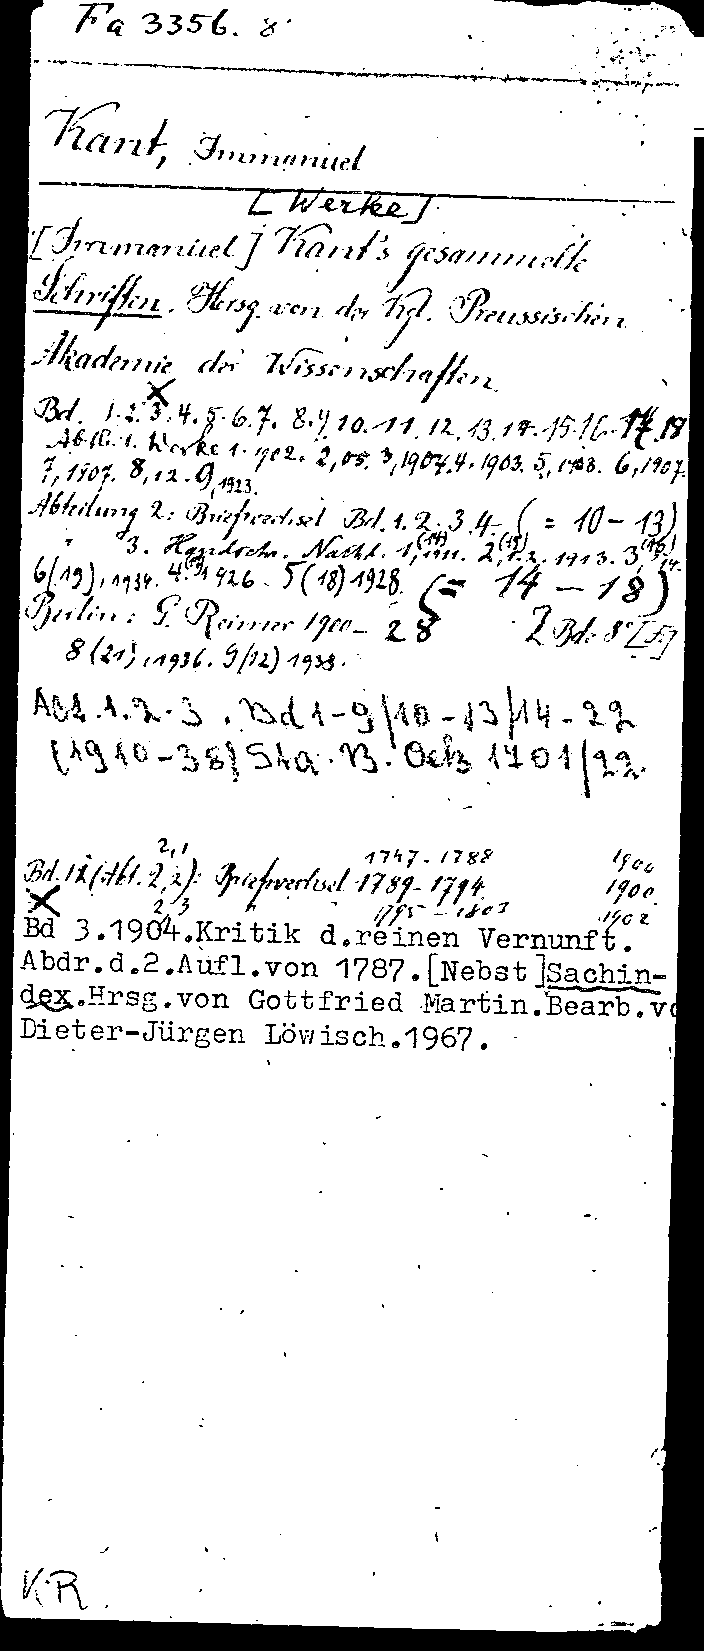 Fa 3356. 8°
Kant, Immanuel
[Werke]
[Immanuel] Kant's gesammelte
Schriften. Hrsg. von der Kgl. Preussischen
Akademie der Wissenschaften
Bd. 1.2.3.4.5.6.7.8.9.10.11.12.13.14.15.16.17.18
Abth. 1. Werke 1.1902. 2,05. 3,1904. 4.1903. 5,1908. 6,1907.
7,1907. 8,12. 9,1923.
Abteilung 2: Briefwechsel Bd. 1.2.3.4. (= 10-13)
" 3. Handschr. Nachl. 1,(14) 1911. 2,(15) 1913. 3,(16) 14.
6(19),1934. 4.(17) 1926. 5(18) 1928. (= 14-18)
Berlin: G. Reimer 1900-28 2 Bde 8°
8(21),1936. 9(22) 1938.
Abt. 1.2.3. Bd 1-9/10-13/14-22
(1910-38) Sta. B. 1701/22
2,1 1747-1788 1900
Bd. 12 (Abt. 2,2): Briefwechsel 1789-1794 1900
2,3 " 1795-1803 1902
Bd 3.1904.Kritik d.reinen Vernunft.
Abdr.d.2.Aufl.von 1787.[Nebst]Sachin-
dex.Hrsg.von Gottfried Martin.Bearb.vo
Dieter-Jürgen Löwisch.1967.
KR.